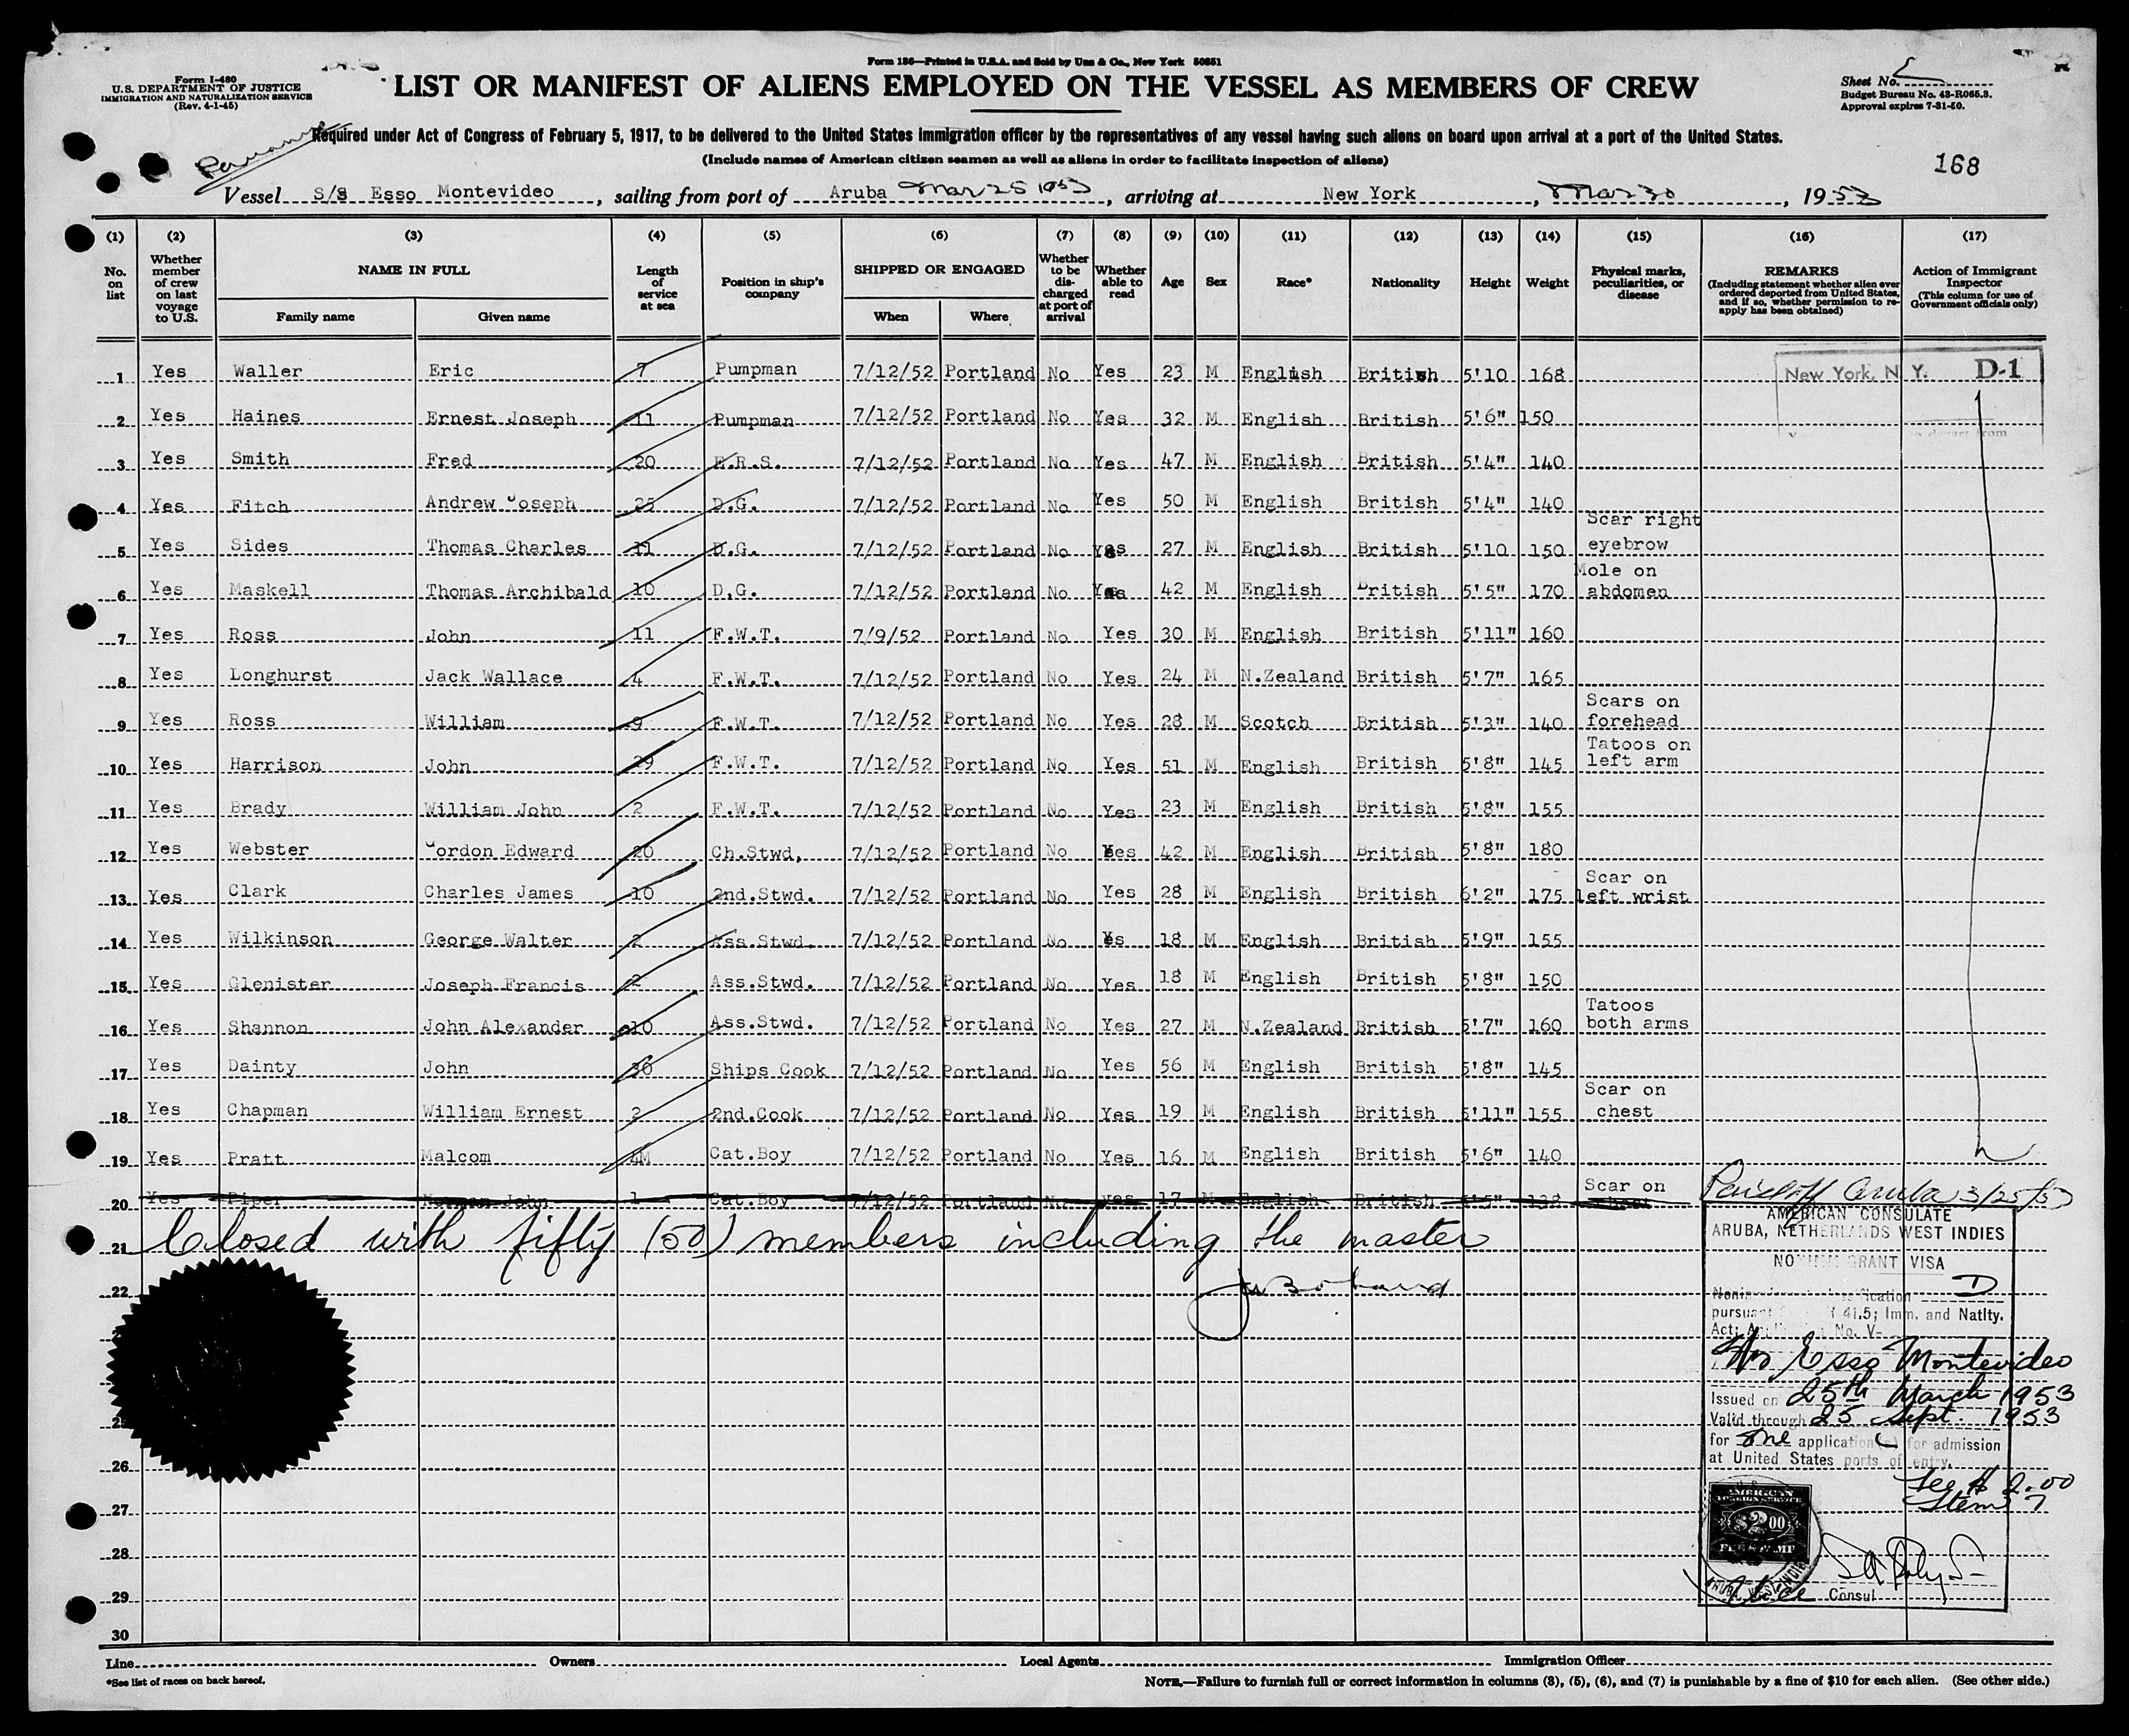 Form I-480
U.S. DEPARTMENT OF JUSTICE
IMMIGRATION AND NATURALIZATION SERVICE
(Rev. 4-1-45)
Form 186—Printed in U.S.A. and Sold by Unz & Co., New York 50851
LIST OR MANIFEST OF ALIENS EMPLOYED ON THE VESSEL AS MEMBERS OF CREW
Sheet No.
Budget Bureau No. 43-R065.3.
Approval expires 7-31-50.
Required under Act of Congress of February 5, 1917, to be delivered to the United States immigration officer by the representatives of any vessel having such aliens on board upon arrival at a port of the United States.
(Include names of American citizen seamen as well as aliens in order to facilitate inspection of aliens)
168
Vessel S/S Esso Montevideo, sailing from port of Aruba Mar 25 1953, arriving at New York, Mar 30, 1953
(1) (2) (3) (4) (5) (6) (7) (8) (9) (10) (11) (12) (13) (14) (15) (16) (17)
No. on list
Whether member of crew on last voyage to U.S.
NAME IN FULL
Family name
Given name
Length of service at sea
Position in ship's company
SHIPPED OR ENGAGED
When
Where
Whether to be discharged at port of arrival
Whether able to read
Age
Sex
Race*
Nationality
Height
Weight
Physical marks, peculiarities, or disease
REMARKS
(Including statement whether alien ever ordered deported from United States, and if so, whether permission to reapply has been obtained)
Action of Immigrant Inspector
(This column for use of Government officials only)
1 Yes Waller Eric 7 Pumpman 7/12/52 Portland No Yes 23 M English British 5'10 168
New York, N. Y. D-1
2 Yes Haines Ernest Joseph 11 Pumpman 7/12/52 Portland No Yes 32 M English British 5'6" 150
3 Yes Smith Fred 20 E.R.S. 7/12/52 Portland No Yes 47 M English British 5'4" 140
4 Yes Fitch Andrew Joseph 25 D.G. 7/12/52 Portland No Yes 50 M English British 5'4" 140
5 Yes Sides Thomas Charles 11 D.G. 7/12/52 Portland No Yes 27 M English British 5'10 150 Scar right eyebrow
6 Yes Maskell Thomas Archibald 10 D.G. 7/12/52 Portland No Yes 42 M English British 5'5" 170 Mole on abdomen
7 Yes Ross John 11 F.W.T. 7/9/52 Portland No Yes 30 M English British 5'11" 160
8 Yes Longhurst Jack Wallace 4 F.W.T. 7/12/52 Portland No Yes 24 M N.Zealand British 5'7" 165
9 Yes Ross William 9 F.W.T. 7/12/52 Portland No Yes 28 M Scotch British 5'3" 140 Scars on forehead
10 Yes Harrison John 29 F.W.T. 7/12/52 Portland No Yes 51 M English British 5'8" 145 Tatoos on left arm
11 Yes Brady William John 2 F.W.T. 7/12/52 Portland No Yes 23 M English British 5'8" 155
12 Yes Webster Gordon Edward 20 Ch.Stwd, 7/12/52 Portland No Yes 42 M English British 5'8" 180
13 Yes Clark Charles James 10 2nd.Stwd. 7/12/52 Portland No Yes 28 M English British 6'2" 175 Scar on left wrist
14 Yes Wilkinson George Walter 2 Ass.Stwd. 7/12/52 Portland No Yes 18 M English British 5'9" 155
15 Yes Glenister Joseph Francis 2 Ass.Stwd. 7/12/52 Portland No Yes 18 M English British 5'8" 150
16 Yes Shannon John Alexander 10 Ass.Stwd. 7/12/52 Portland No Yes 27 M N.Zealand British 5'7" 160 Tatoos both arms
17 Yes Dainty John 30 Ships Cook 7/12/52 Portland No Yes 56 M English British 5'8" 145
18 Yes Chapman William Ernest 2 2nd.Cook 7/12/52 Portland No Yes 19 M English British 5'11" 155 Scar on chest
19 Yes Pratt Malcom 4M Cat.Boy 7/12/52 Portland No Yes 16 M English British 5'6" 140
20 Yes Piper Norman John 1 Cat.Boy 7/12/52 Portland No Yes 17 M English British 5'5" 132 Scar on chest
Aruba 3/25/53
21 Closed with fifty (50) members including the master
22
26
27
28
29
30
AMERICAN CONSULATE
ARUBA, NETHERLANDS WEST INDIES
NONIMMIGRANT VISA
Nonimmigrant classification D
pursuant 41.5; Imm. and Natlty.
Act; Application No. V-
Esso Montevideo
Issued on 25th March 1953
Valid through 25 Sept. 1953
for one application(s) for admission
at United States ports of entry.
Fee $ 2.00
Item 7
AMERICAN
FOREIGN SERVICE
$2.00
FEE STAMP
Consul
Line
Owners
Local Agents
Immigration Officer
*See list of races on back hereof.
NOTE.—Failure to furnish full or correct information in columns (3), (5), (6), and (7) is punishable by a fine of $10 for each alien. (See other side.)